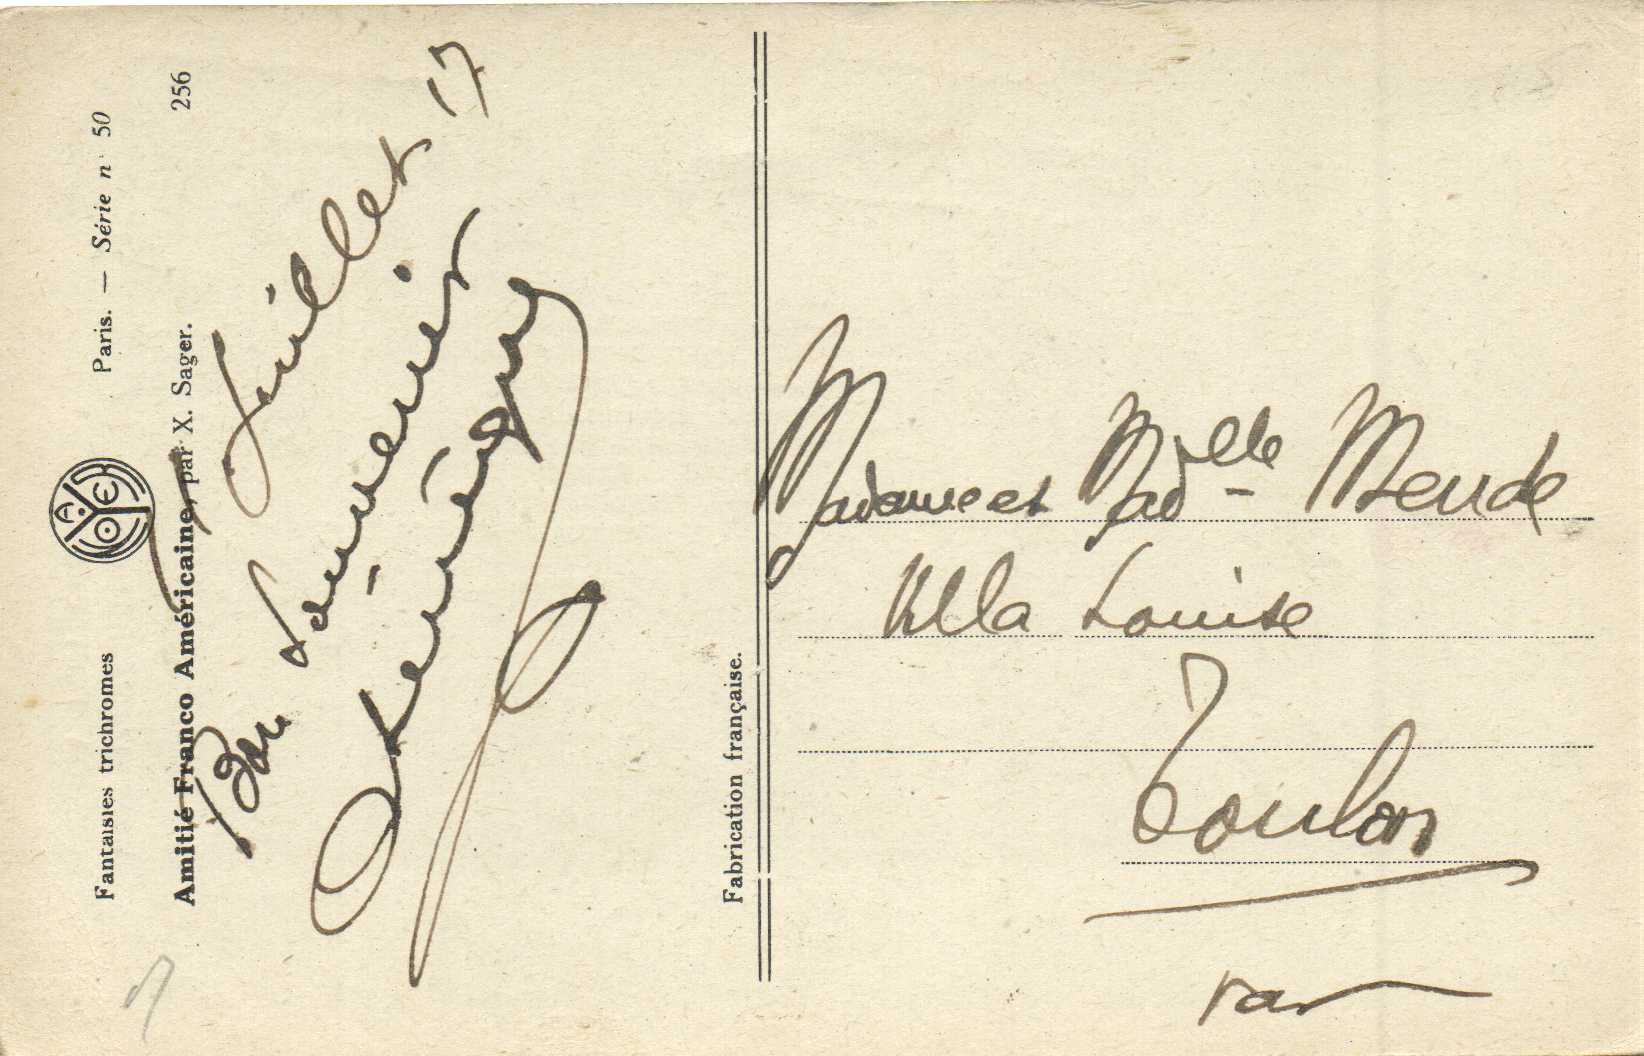 Fantaisies trichromes Paris. — Série n° 50
Amitié Franco Américaine, par X. Sager. 256
Juillet 17
Bon souvenir
Fabrication française.
Madame et Mad elle - Mende
Villa Louise
Toulon
Var